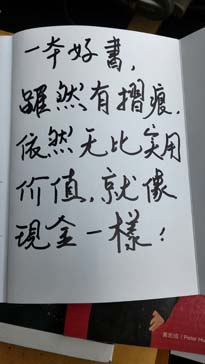 一本好書，
雖然有摺痕，
依然无比实用
价值，就像
現金一樣！